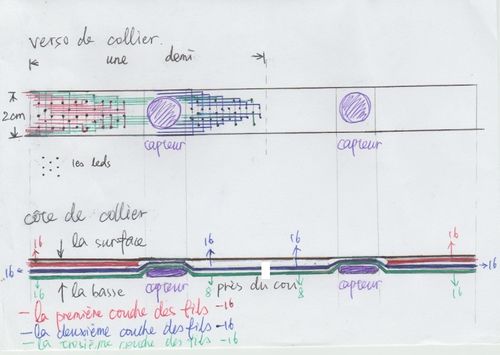 verso de collier.
une demi
2cm
capteur capteur
les leds
côté de collier
16 la surface 16 16 16
16 16
16 la basse capteur 8 près du cou 8 capteur 16
- la première couche des fils - 16
- la deuxième couche des fils - 16
- la troisième couche des fils - 16